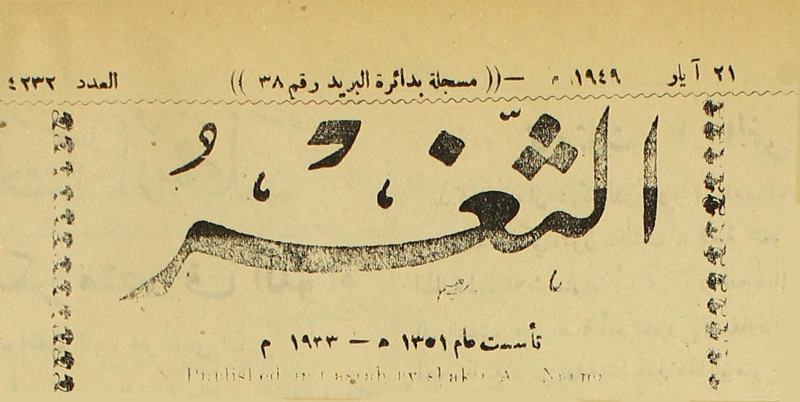 ٢١ آيار ١٩٤٩ م —(( مسجلة بدائرة البريد رقم ٣٨ )) العدد ٤٢٣٢
الثَّغْرُ
تأسست عام ١٣٥١ ه — ١٩٣٣ م
Published